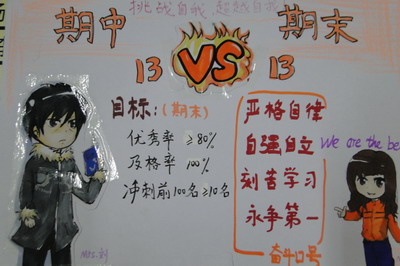 挑战自我 超越自我
期中 VS 期末
13 13
目标:(期末)
优秀率 ≥80%
及格率 100%
冲刺前100名≥10名
严格自律
自强自立
刻苦学习
永争第一
We are the be
奋斗口号
Mrs.刘